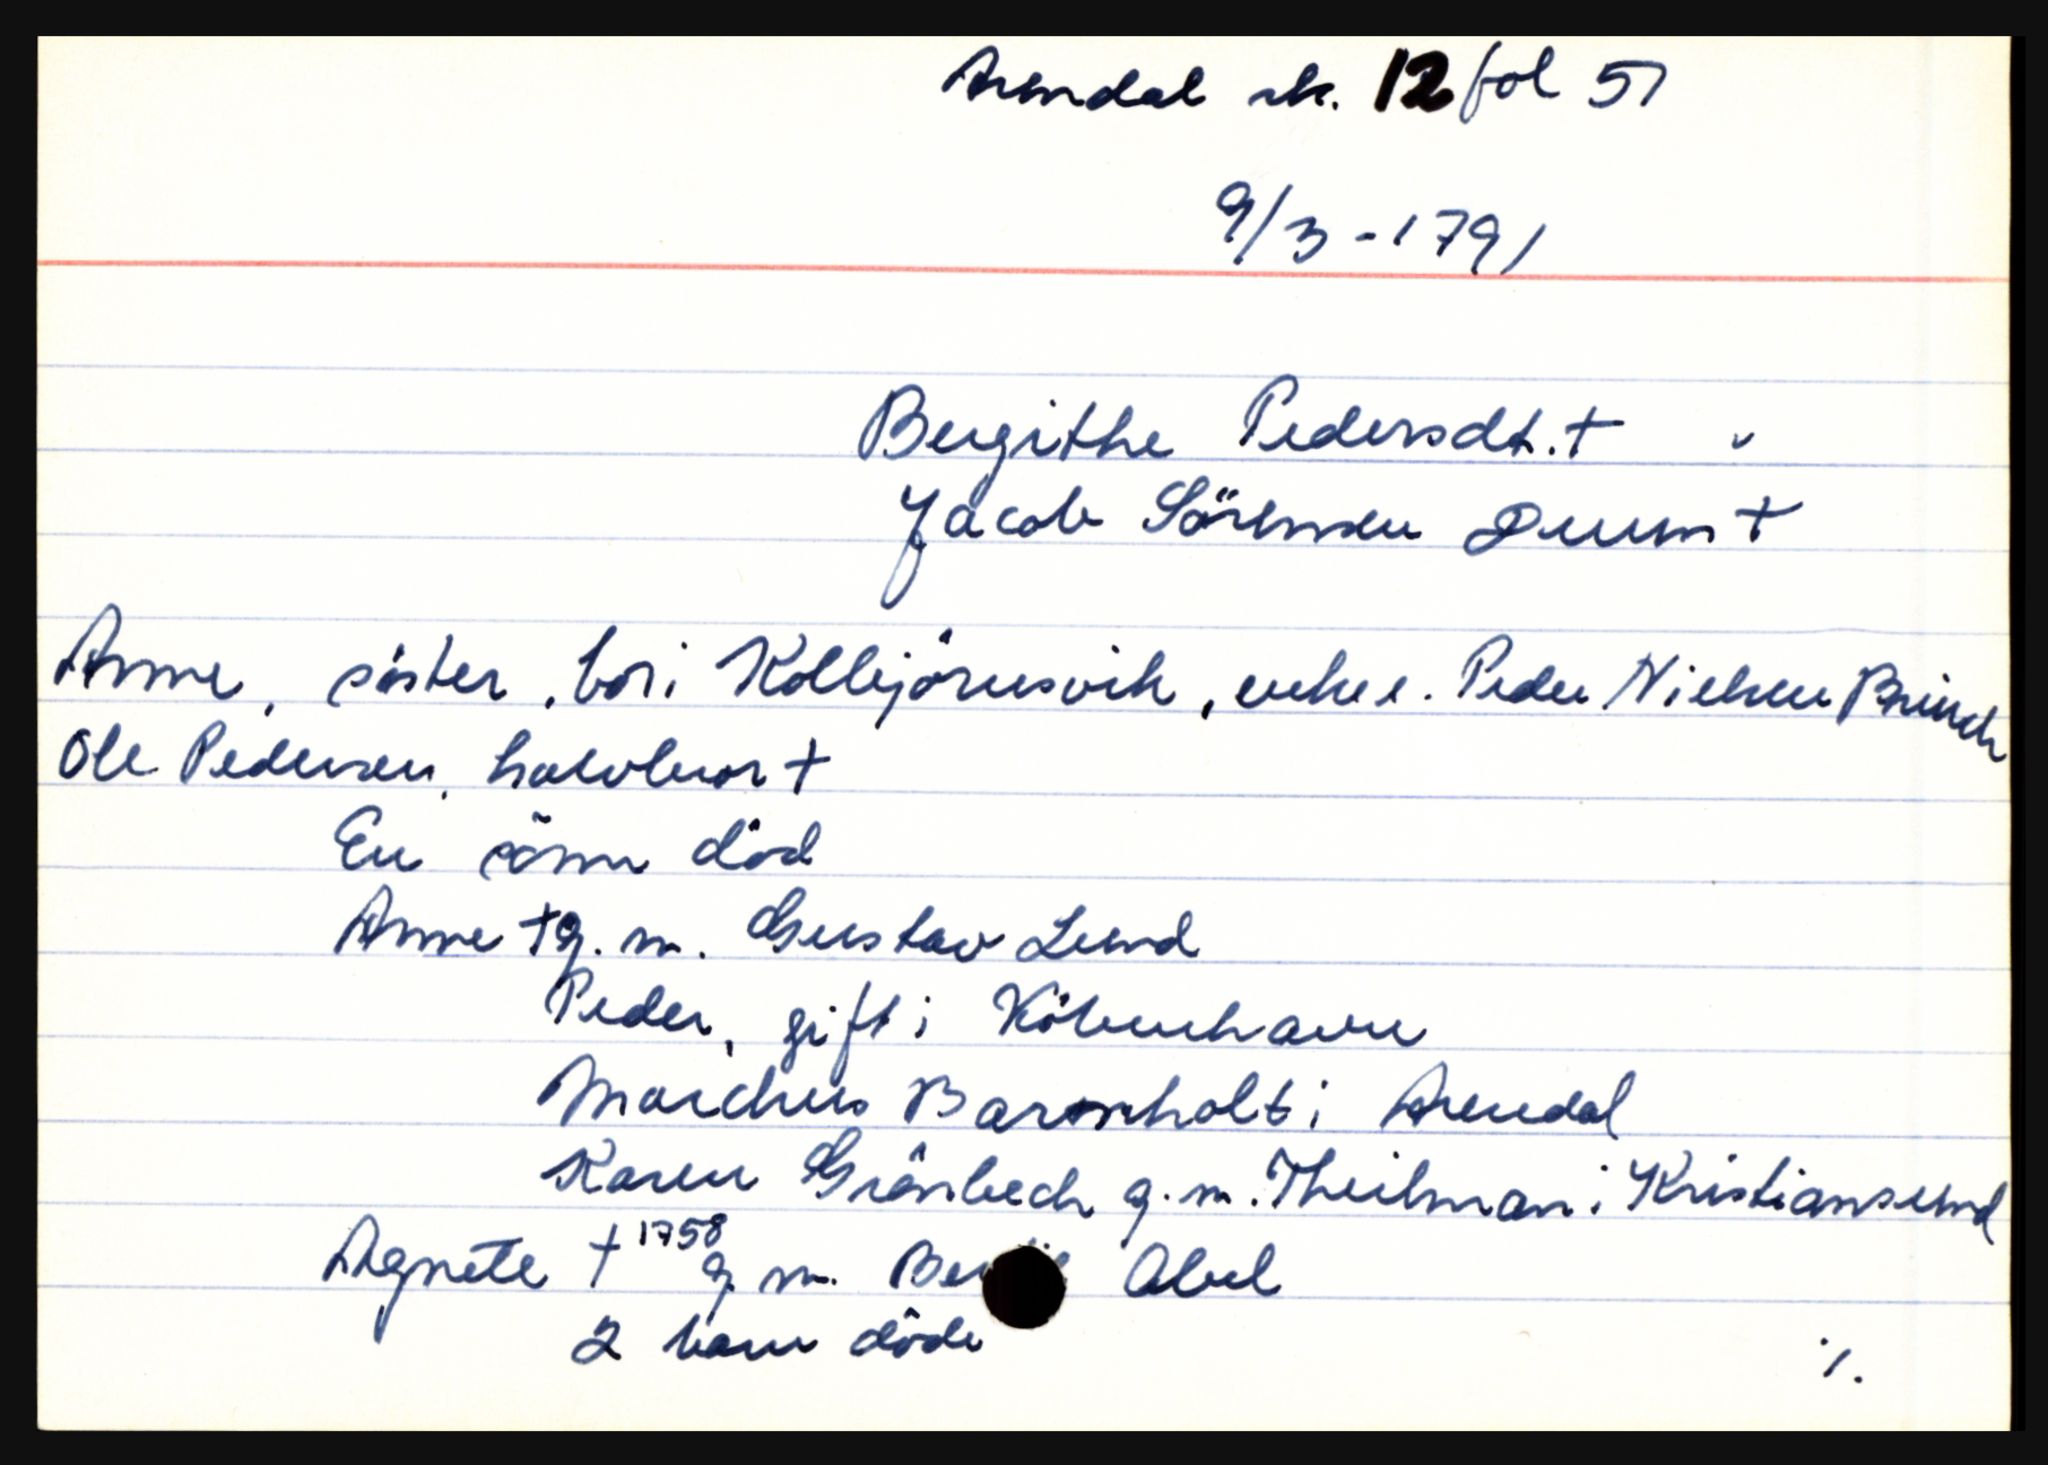 Arendal sk. 12 fol 51
9/3 - 1791
Bergithe Pedersdt. +
Jacob Sörensen Duus +
Anne, söster, bor i Kolbjörnsvik, enke e. Peder Nielsen Brinch
Ole Pedersen, halvbror +
En sönn död
Anne + g. m. Gustav Lund
Peder, gift i Köbenhavn
Marchus Barnholt i Arendal
Karen Grönbech g. m. Theilman i Kristiansund
Agnete + 1758 g. m. Abel
2 barn döde
./.